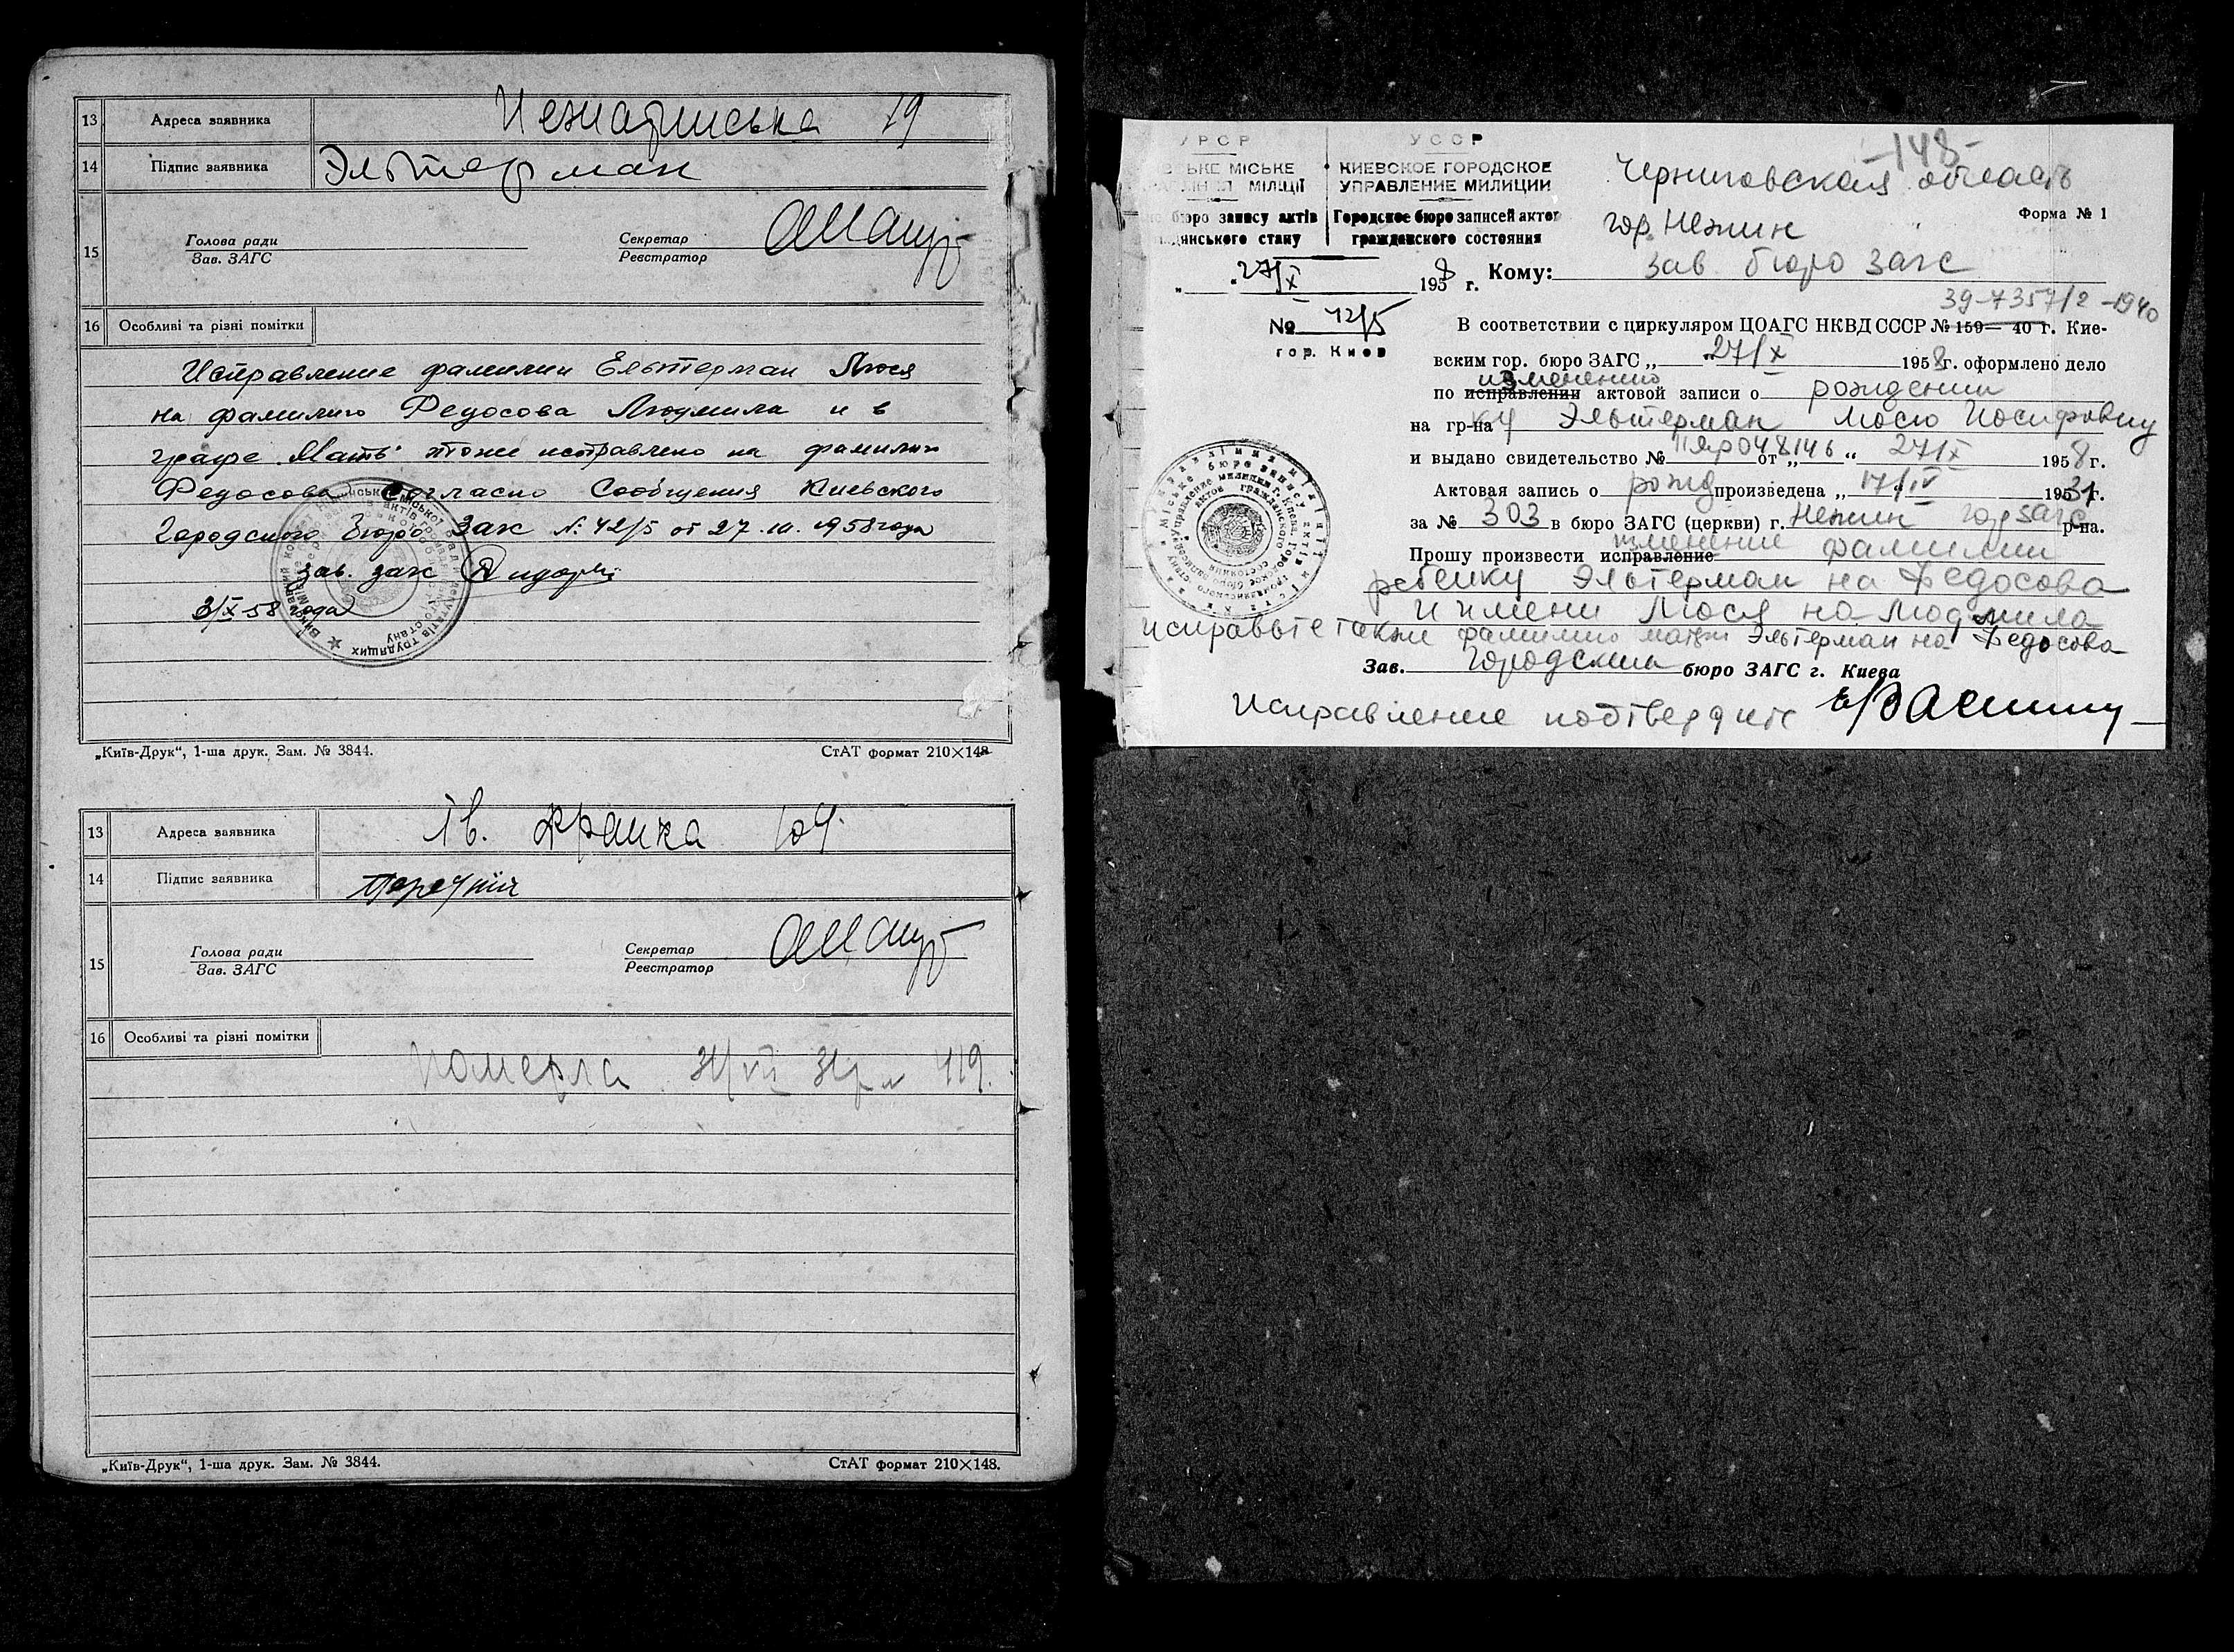 13 Адреса заявника 19
14 Підпис заявника Эльтерман
15 Голова ради Секретар
Зав. ЗАГС Реєстратор
16 Особливі та різні помітки
Исправление фамилии Ельтерман Люся
на фамилию Федосова Людмила и в
графе "Мать" тоже исправлено на фамилию
Федосова согласно Сообщения Киевского
Городского Бюро Загс № 42/5 от 27.10.1958 года
зав. загс
3/X-58 года
„Київ-Друк“, 1-ша друк. Зам. № 3844. СтАТ формат 210×148
13 Адреса заявника Ів. Франка 104
14 Підпис заявника
15 Голова ради Секретар
Зав. ЗАГС Реєстратор
16 Особливі та різні помітки
Померла 31/VII 31р № 419.
„Київ-Друк“, 1-ша друк. Зам. № 3844. СтАТ формат 210×148.
-148-
УРСР УССР
МІСЬКЕ КИЕВСКОЕ ГОРОДСКОЕ
МІЛІЦІЇ УПРАВЛЕНИЕ МИЛИЦИИ
бюро запису актів Городское бюро записей актов
стану гражданского состояния
Черниговская область
Форма № 1
гор. Нежин
„27/X 1958 г. Кому: Зав бюро загс
39-7357/2-1940
№ 42/5 В соответствии с циркуляром ЦОАГС НКВД СССР № 159— 40 г. Кие-
гор. Киев
вским гор. бюро ЗАГС „ 27/X 1958 г. оформлено дело
изменению
по исправлении актовой записи о рождении
на гр-на ку Эльтерман Люсю Иосифовну
и выдано свидетельство № 048146 от „ “ 27/X 1958 г.
Актовая запись о рожд произведена „ 17/IV 1931 г.
за № 303 в бюро ЗАГС (церкви) г. Нежин гор загс р-на.
изменение
Прошу произвести исправление фамилии
ребенку Эльтерман на Федосова
и имени Люся на Людмила
исправьте также фамилию матери Эльтерман на Федосова
Зав. Городским бюро ЗАГС г. Киева
Исправление подтвердите